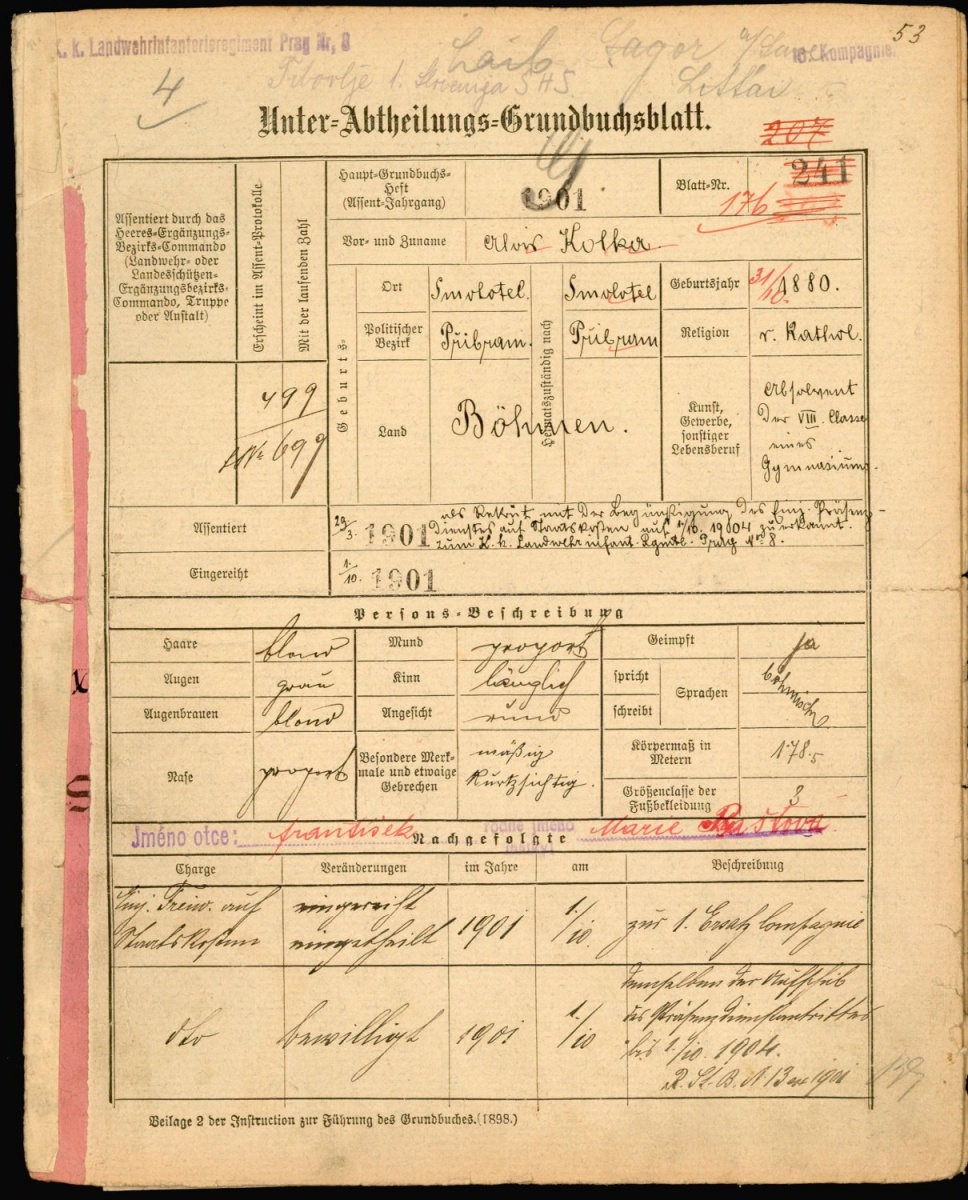 53
K. k. Landwehrinfanterieregiment Prag Nr. 8
Laib
Sagor a/Save
10. Kompagnie.
4
1. Slovenija SHS
Littai
Unter-Abtheilungs-Grundbuchsblatt.
207
241
176
Assentiert durch das
Heeres-Ergänzungs-
Bezirks-Commando
(Landwehr- oder
Landesschützen-
Ergänzungsbezirks-
Commando, Truppe
oder Anstalt)
Erscheint im Assent-Protokolle
Mit der laufenden Zahl
499
699
Haupt-Grundbuchs-
Heft
(Assent-Jahrgang)
1901
Blatt-Nr.
Vor- und Zuname
Alois Kolka
Geburts-
Ort
Smolotel.
Heimatszuständig nach
Smolotel
Geburtsjahr
31/10. 1880.
Politischer
Bezirk
Přibram.
Přibram
Religion
r. Kathol.
Land
Böhmen.
Kunst,
Gewerbe,
sonstiger
Lebensberuf
Absolvent
der VIII. Classe
eines
Gymnasiums.
Assentiert
29/3. 1901
als Rekrut mit der Begünstigung des Einj. Präsenz-
dienstes auf Staatskosten auf 1/10. 1904 zuerkannt.
zum K. k. Landwehrinfant. Rgmte. Prag No 8.
Eingereiht
1./10. 1901
Persons-Beschreibung
Haare
blond
Mund
proport
Geimpft
ja
Augen
grau
Kinn
länglich
spricht
schreibt
Sprachen
böhmisch
Augenbrauen
blond
Angesicht
rund
Nase
proport
Besondere Merk-
male und etwaige
Gebrechen
mäßig
kurtzsichtig.
Körpermaß in
Metern
1·78.5
Größenclasse der
Fußbekleidung
3
Jméno otce: František
rodné jméno
matky:
Marie Baštová
Nachgefolgte
Charge
Veränderungen
im Jahre
am
Beschreibung
Einj. Freiw. auf
Staatskosten
eingereiht
eingetheilt
1901
1./10.
zur 1. Ersatz Compagnie
dto
bewilligt
1901
1./10
demselben der Aufschub
des Präsenzdienstantrittes
bis 1./10. 1904.
1901
Beilage 2 der Instruction zur Führung des Grundbuches. (1898.)